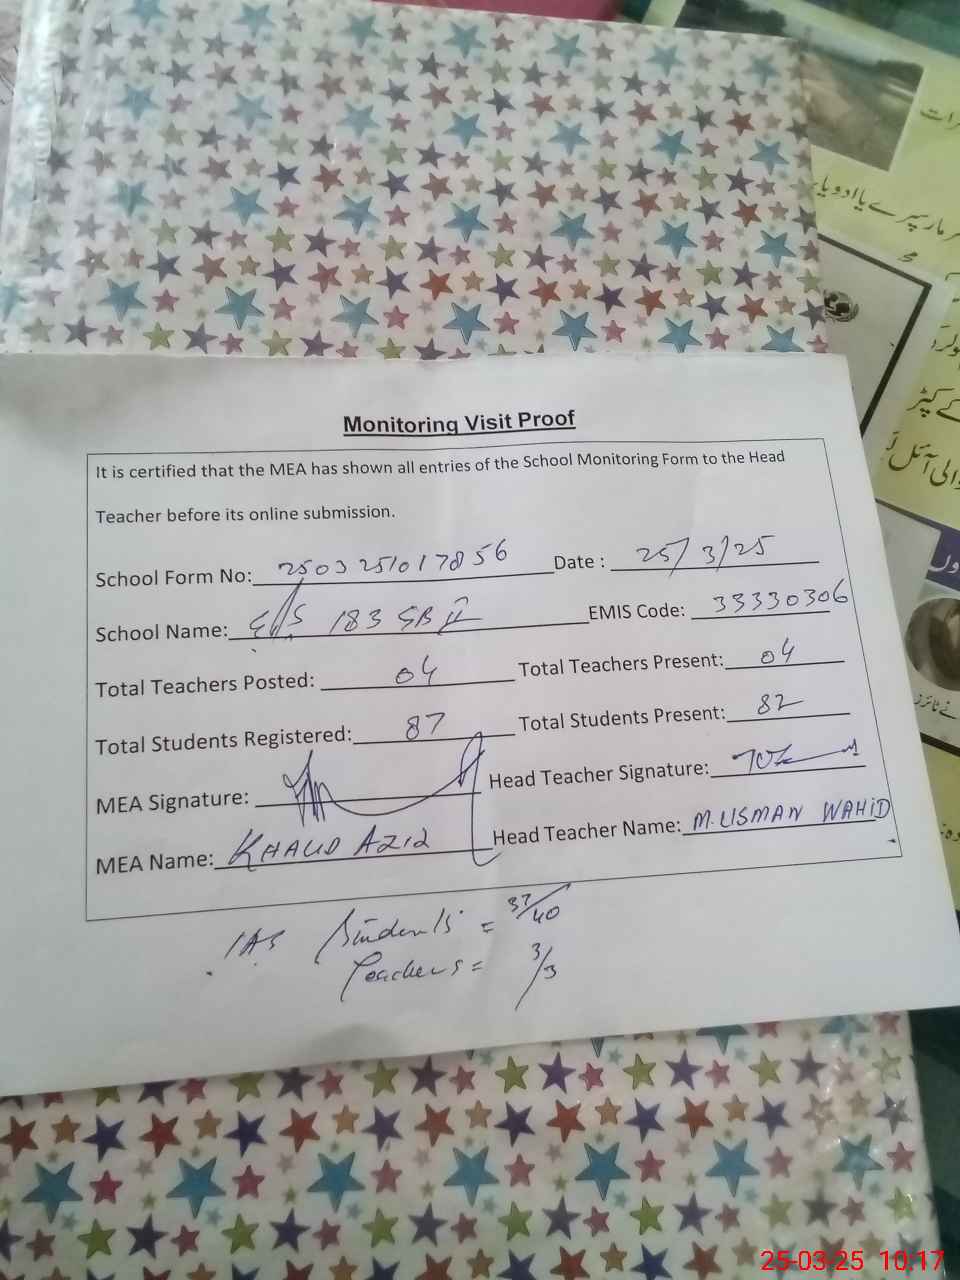 رات
مار سپرے یا ادویا
Monitoring Visit Proof
It is certified that the MEA has shown all entries of the School Monitoring Form to the Head
Teacher before its online submission.
School Form No: 2503251017856 Date : 25/3/25
School Name: 183 GB II EMIS Code: 33330306
Total Teachers Posted: 04 Total Teachers Present: 04
Total Students Registered: 87 Total Students Present: 82
MEA Signature: Head Teacher Signature:
MEA Name: KHALID AZIZ Head Teacher Name: M. USMAN WAHiD
Students = 37/40
Teachers = 3/3
25-03-25 10:17